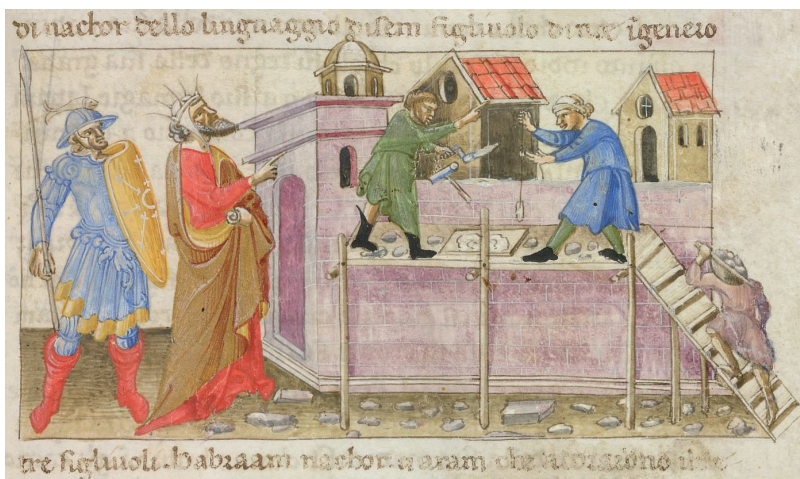 di nachor dello linguaggio di sem figliuolo di noe igenero
tre figliuoli. habraam nachor aram che